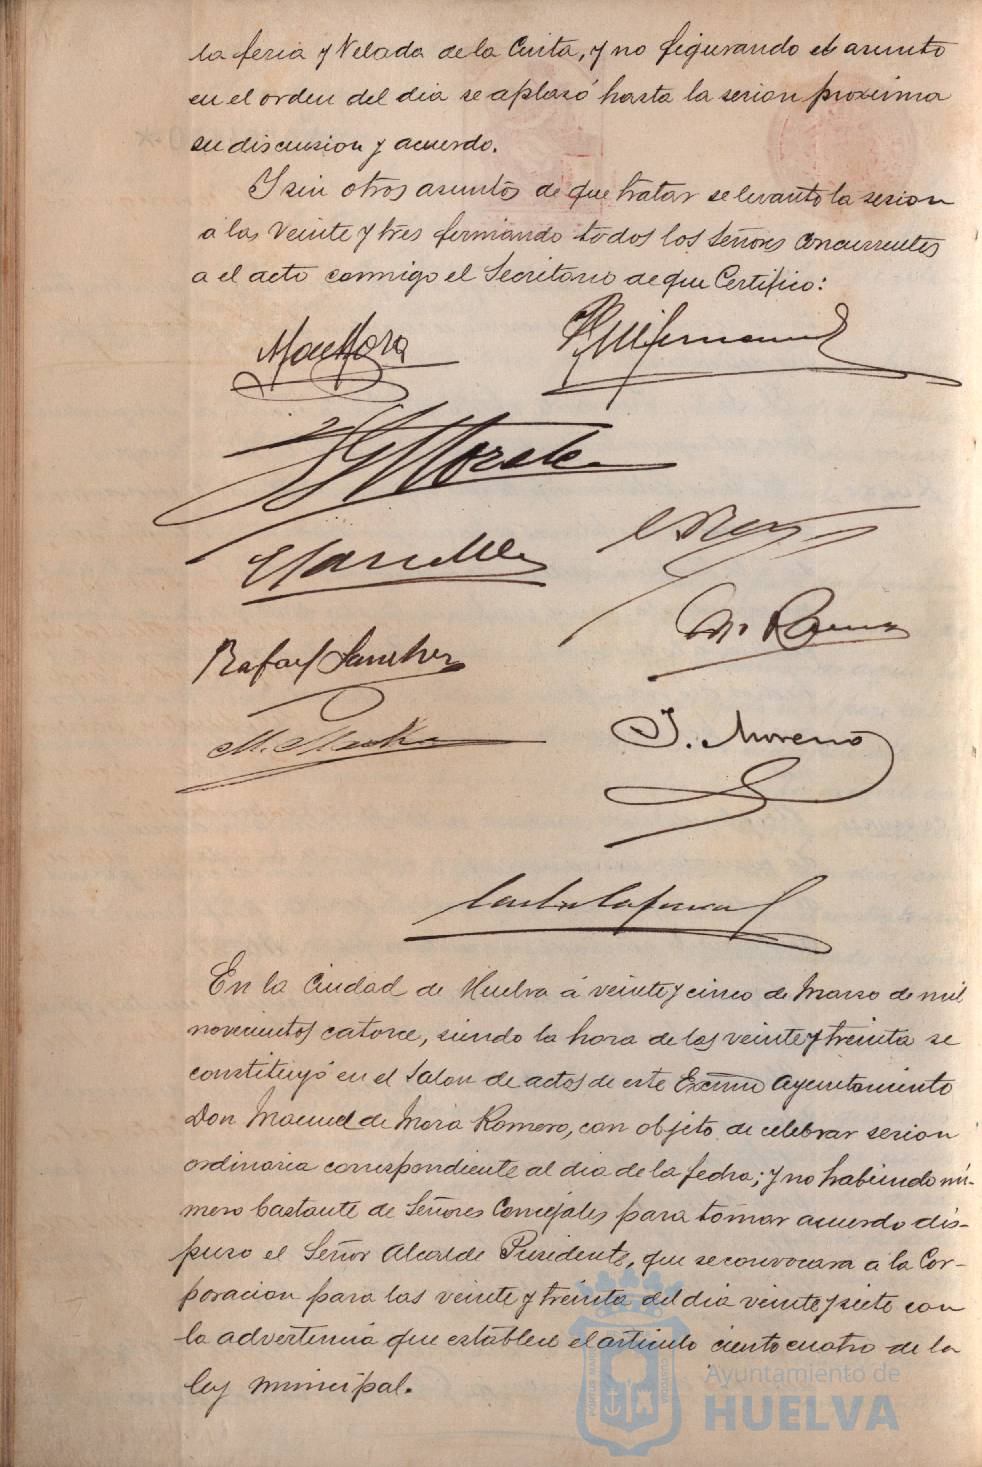 la feria y Velada de la Cinta, y no figurando el asunto
en el orden del dia se aplasó hasta la sesion proxima
su discusion y acuerdo.
Y sin otros asuntos de que tratar se levanto la sesion
a las veinte y tres firmando todos los Señores concurrentes
a el acto conmigo el Secretario de que Certifico:
Rafael Sanchez
J. Moreno
En la Ciudad de Huelva á veinte y cinco de Marzo de mil
novecientos catorce, siendo la hora de las veinte y treinta se
constituyó en el Salon de actos de este Excmo Ayuntamiento
Don Manuel de Mora Romero, con objeto de celebrar sesion
ordinaria correspondiente al dia de la fecha; y no habiendo nú-
mero bastante de Señores Concejales para tomar acuerdo dis-
puso el Señor Alcalde Presidente, que se convocara a la Cor-
poracion para las veinte y treinta del dia veinte y siete con
la advertencia que establece el articulo ciento cuatro de la
ley municipal.
Ayuntamiento de
HUELVA